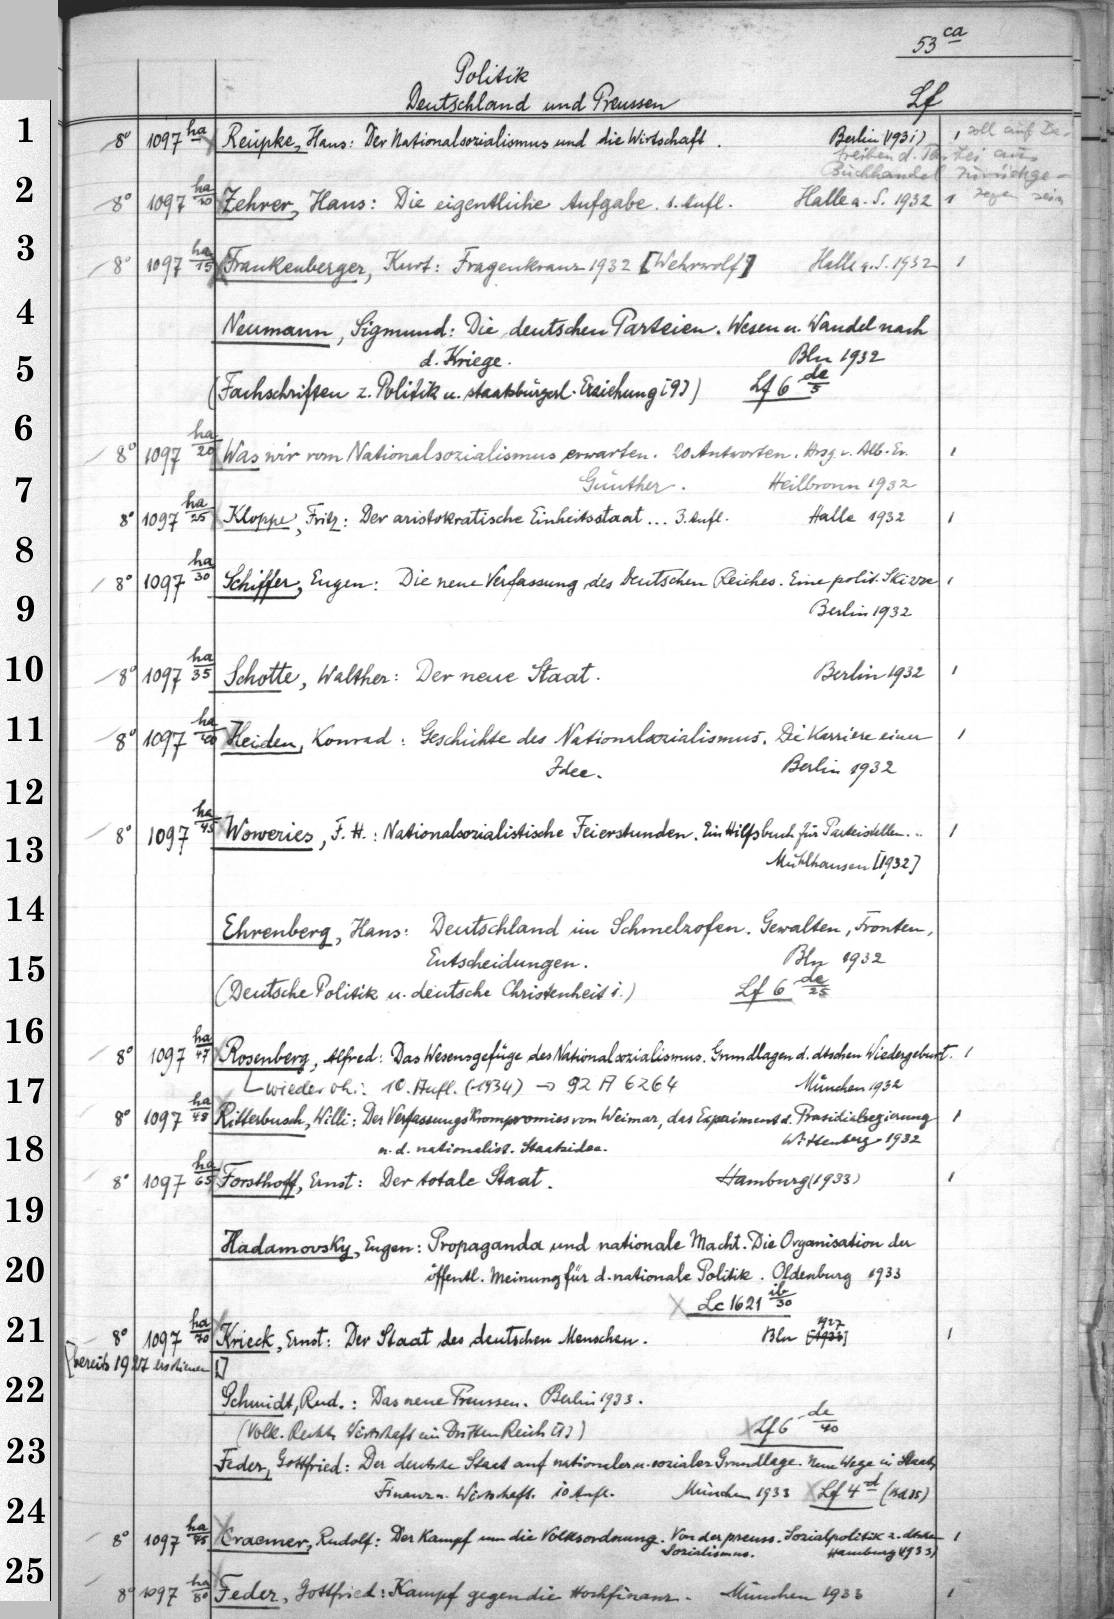 53 ca
Politik
Deutschland und Preussen Lf
1 8° 1097 ha Reupke, Hans: Der Nationalsozialismus und die Wirtschaft. Berlin (1931) 1 soll auf Be-
treiben d. Partei aus
Buchhandel zurückge-
2 8° 1097 ha/10 Zehrer, Hans: Die eigentliche Aufgabe. 1. Aufl. Halle a. S. 1932 1 zogen sein
3 8° 1097 ha/15 Frankenberger, Kurt: Fragenkranz 1932 [Wehrwolf] Halle a. S. 1932 1
4 Neumann, Sigmund: Die deutschen Parteien. Wesen u. Wandel nach
d. Kriege. Bln 1932
5 (Fachschriften z. Politik u. staatsbürgerl. Erziehung [9]) Lf 6 de/5
6 8° 1097 ha/20 Was wir vom Nationalsozialismus erwarten. 20 Antworten. Hrsg. v. Alb. Er. 1
7 Günther. Heilbronn 1932
8° 1097 ha/25 Kloppe, Fritz: Der aristokratische Einheitsstaat ... 3. Aufl. Halle 1932 1
8 8° 1097 ha/30 Schiffer, Eugen: Die neue Verfassung des Deutschen Reiches. Eine polit. Skizze 1
9 Berlin 1932
10 8° 1097 ha/35 Schotte, Walther: Der neue Staat. Berlin 1932 1
11 8° 1097 ha/40 Heiden, Konrad: Geschichte des Nationalsozialismus. Die Karriere einer 1
Idee. Berlin 1932
12
13 8° 1097 ha/45 Woweries, F. H.: Nationalsozialistische Feierstunden. Ein Hilfsbuch für Parteistellen... 1
Mühlhausen [1932]
14 Ehrenberg, Hans: Deutschland im Schmelzofen. Gewalten, Fronten,
15 Entscheidungen. Bln 1932
(Deutsche Politik u. deutsche Christenheit 1.) Lf 6 de/25
16 8° 1097 ha/47 Rosenberg, Alfred: Das Wesensgefüge des Nationalsozialismus. Grundlagen d. dtschen Wiedergeburt. 1
17 wieder vh.: 10. Aufl. (1934) → 92 A 6264 München 1932
8° 1097 ha/48 Ritterbusch, Willi: Der Verfassungskompromies von Weimar, das Experiment d. Präsidialregierung 1
18 u. d. nationalist. Staatsidee. Wittenberg 1932
8° 1097 ha/65 Forsthoff, Ernst: Der totale Staat. Hamburg (1933) 1
19 Hadamovsky, Eugen: Propaganda und nationale Macht. Die Organisation der
20 öffentl. Meinung für d. nationale Politik. Oldenburg 1933
Lc 1621 ib/30
21 8° 1097 ha/70 Krieck, Ernst: Der Staat des deutschen Menschen. Bln 1927 [1933] 1
[bereits 1927 erschienen!]
22 Schmidt, Rud.: Das neue Preussen. Berlin 1933.
(Volk. Recht. Wirtschaft im Dritten Reich [1]) Lf 6 de/40
23 Feder, Gottfried: Der deutsche Staat auf nationaler u. sozialer Grundlage. Neue Wege in Staat,
24 Finanz u. Wirtschaft. 10 Aufl. München 1933 Lf 4 d
8° 1097 ha/75 Craemer, Rudolf: Der Kampf um die Volksordnung. Von der preuss. Sozialpolitik z. dtschen 1
Sozialismus. Hamburg (1933)
25 8° 1097 ha/80 Feder, Gottfried: Kampf gegen die Hochfinanz. München 1933 1